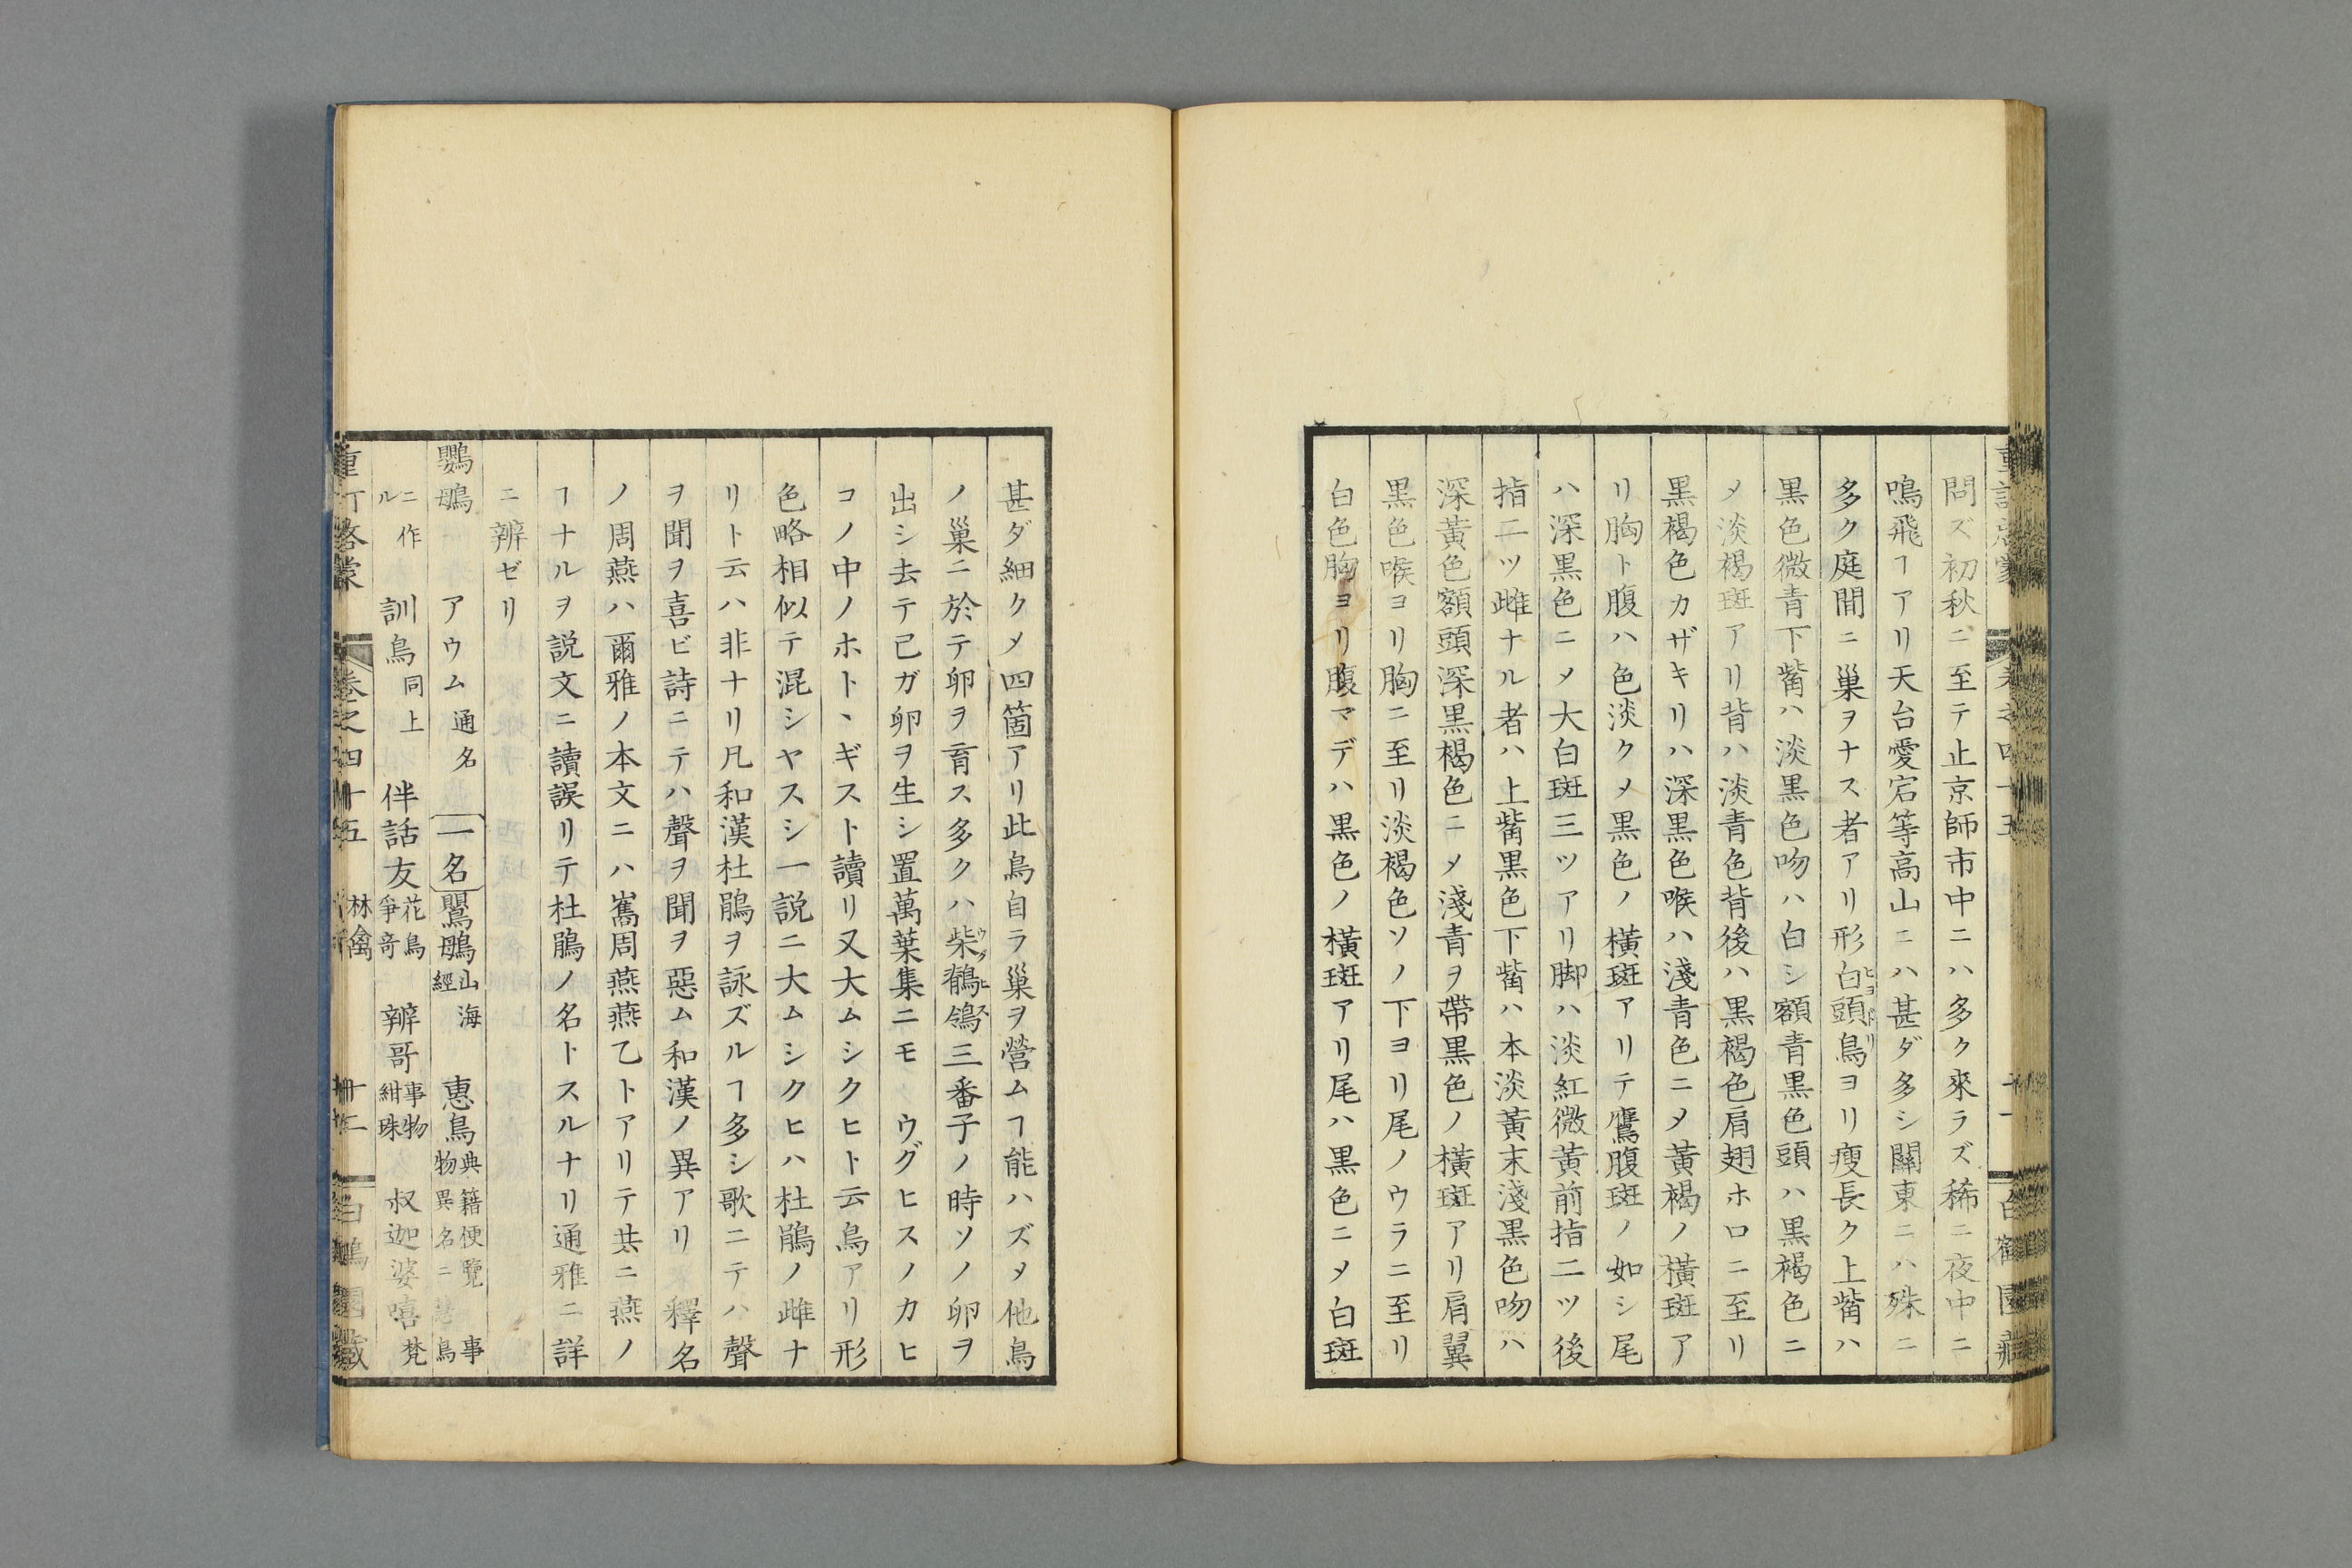 問ズ初秋ニ至テ止京師市中ニハ多ク來ラズ稀ニ夜中ニ
鳴飛ヿアリ天台愛宕等高山ニハ甚ダ多シ關東ニハ殊ニ
多ク庭間ニ巢ヲナス者アリ形白頭鳥ヨリ瘦長ク上觜ハ
黒色微青下觜ハ淡黒色吻ハ白シ額青黒色頭ハ黒褐色ニ
〆淡褐斑アリ背ハ淡青色背後ハ黒褐色肩翅ホロニ至リ
黒褐色カザキリハ深黒色喉ハ淺青色ニ〆黃褐ノ横斑ア
リ胸ト腹ハ色淡ク〆黒色ノ横斑アリテ鷹腹斑ノ如シ尾
ハ深黒色ニ〆大白斑三ツアリ脚ハ淡紅微黃前指二ツ後
指二ツ雌ナル者ハ上觜黒色下觜ハ本淡黃末淺黒色吻ハ
深黃色額頭深黒褐色ニ〆淺青ヲ帶黒色ノ横斑アリ肩翼
黒色喉ヨリ胸ニ至リ淡褐色ソノ下ヨリ尾ノウラニ至リ
白色胸ヨリ腹マデハ黒色ノ横斑アリ尾ハ黒色ニ〆白斑
甚ダ細ク〆四箇アリ此鳥自ラ巢ヲ營ムヿ能ハズ〆他鳥
ノ巢ニ於テ卵ヲ育ス多クハ柴鶺鴒三番子ノ時ソノ卵ヲ
出シ去テ己ガ卵ヲ生シ置萬葉集ニモ ウグヒスノカヒ
コノ中ノホトヽギスト讀リ又大ムシクヒト云鳥アリ形
色略相似テ混シヤスシ一説ニ大ムシクヒハ杜鵑ノ雌ナ
リト云ハ非ナリ凡和漢杜鵑ヲ詠ズルヿ多シ歌ニテハ聲
ヲ聞ヲ喜ビ詩ニテハ聲ヲ聞ヲ惡ム和漢ノ異アリ 釋名
ノ周燕ハ爾雅ノ本文ニハ巂周燕燕乙トアリテ共ニ燕ノ
ヿナルヲ説文ニ讀誤リテ杜鵑ノ名トスルナリ通雅ニ詳
ニ辨ゼリ
鸚鵡 アウム通名 一名 鸎鴟山海經 惠鳥典籍便覽 事物異名ニ慧鳥
ニ作ル 訓鳥同上 伴話友花鳥爭奇 辨哥事物紺珠 叔迦婆嘻梵
卷之四十五 林禽